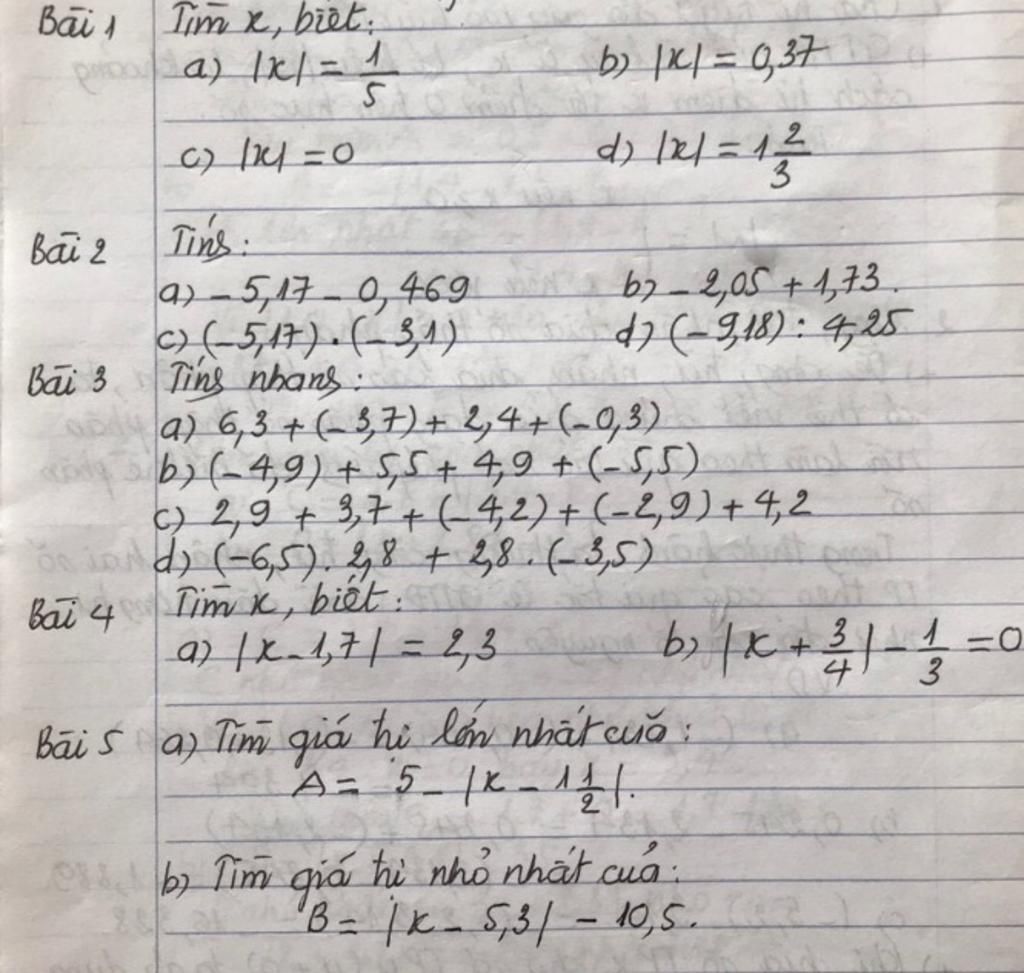 Bài 1 Tìm x, biết:
a) |x| = 1/5 b) |x| = 0,37
c) |x| = 0 d) |x| = 1 2/3
Bài 2 Tính:
a) - 5,17 - 0,469 b) - 2,05 + 1,73.
c) (-5,17) . (-3,1) d) (-9,18) : 4,25
Bài 3 Tính nhanh:
a) 6,3 + (-3,7) + 2,4 + (-0,3)
b) (-4,9) + 5,5 + 4,9 + (-5,5)
c) 2,9 + 3,7 + (-4,2) + (-2,9) + 4,2
d) (-6,5). 2,8 + 2,8 . (-3,5)
Bài 4 Tìm x, biết:
a) |x - 1,7| = 2,3 b) |x + 3/4| - 1/3 = 0
Bài 5 a) Tìm giá trị lớn nhất của:
A = 5 - |x - 1 1/2|.
b) Tìm giá trị nhỏ nhất của:
B = |x - 5,3| - 10,5.